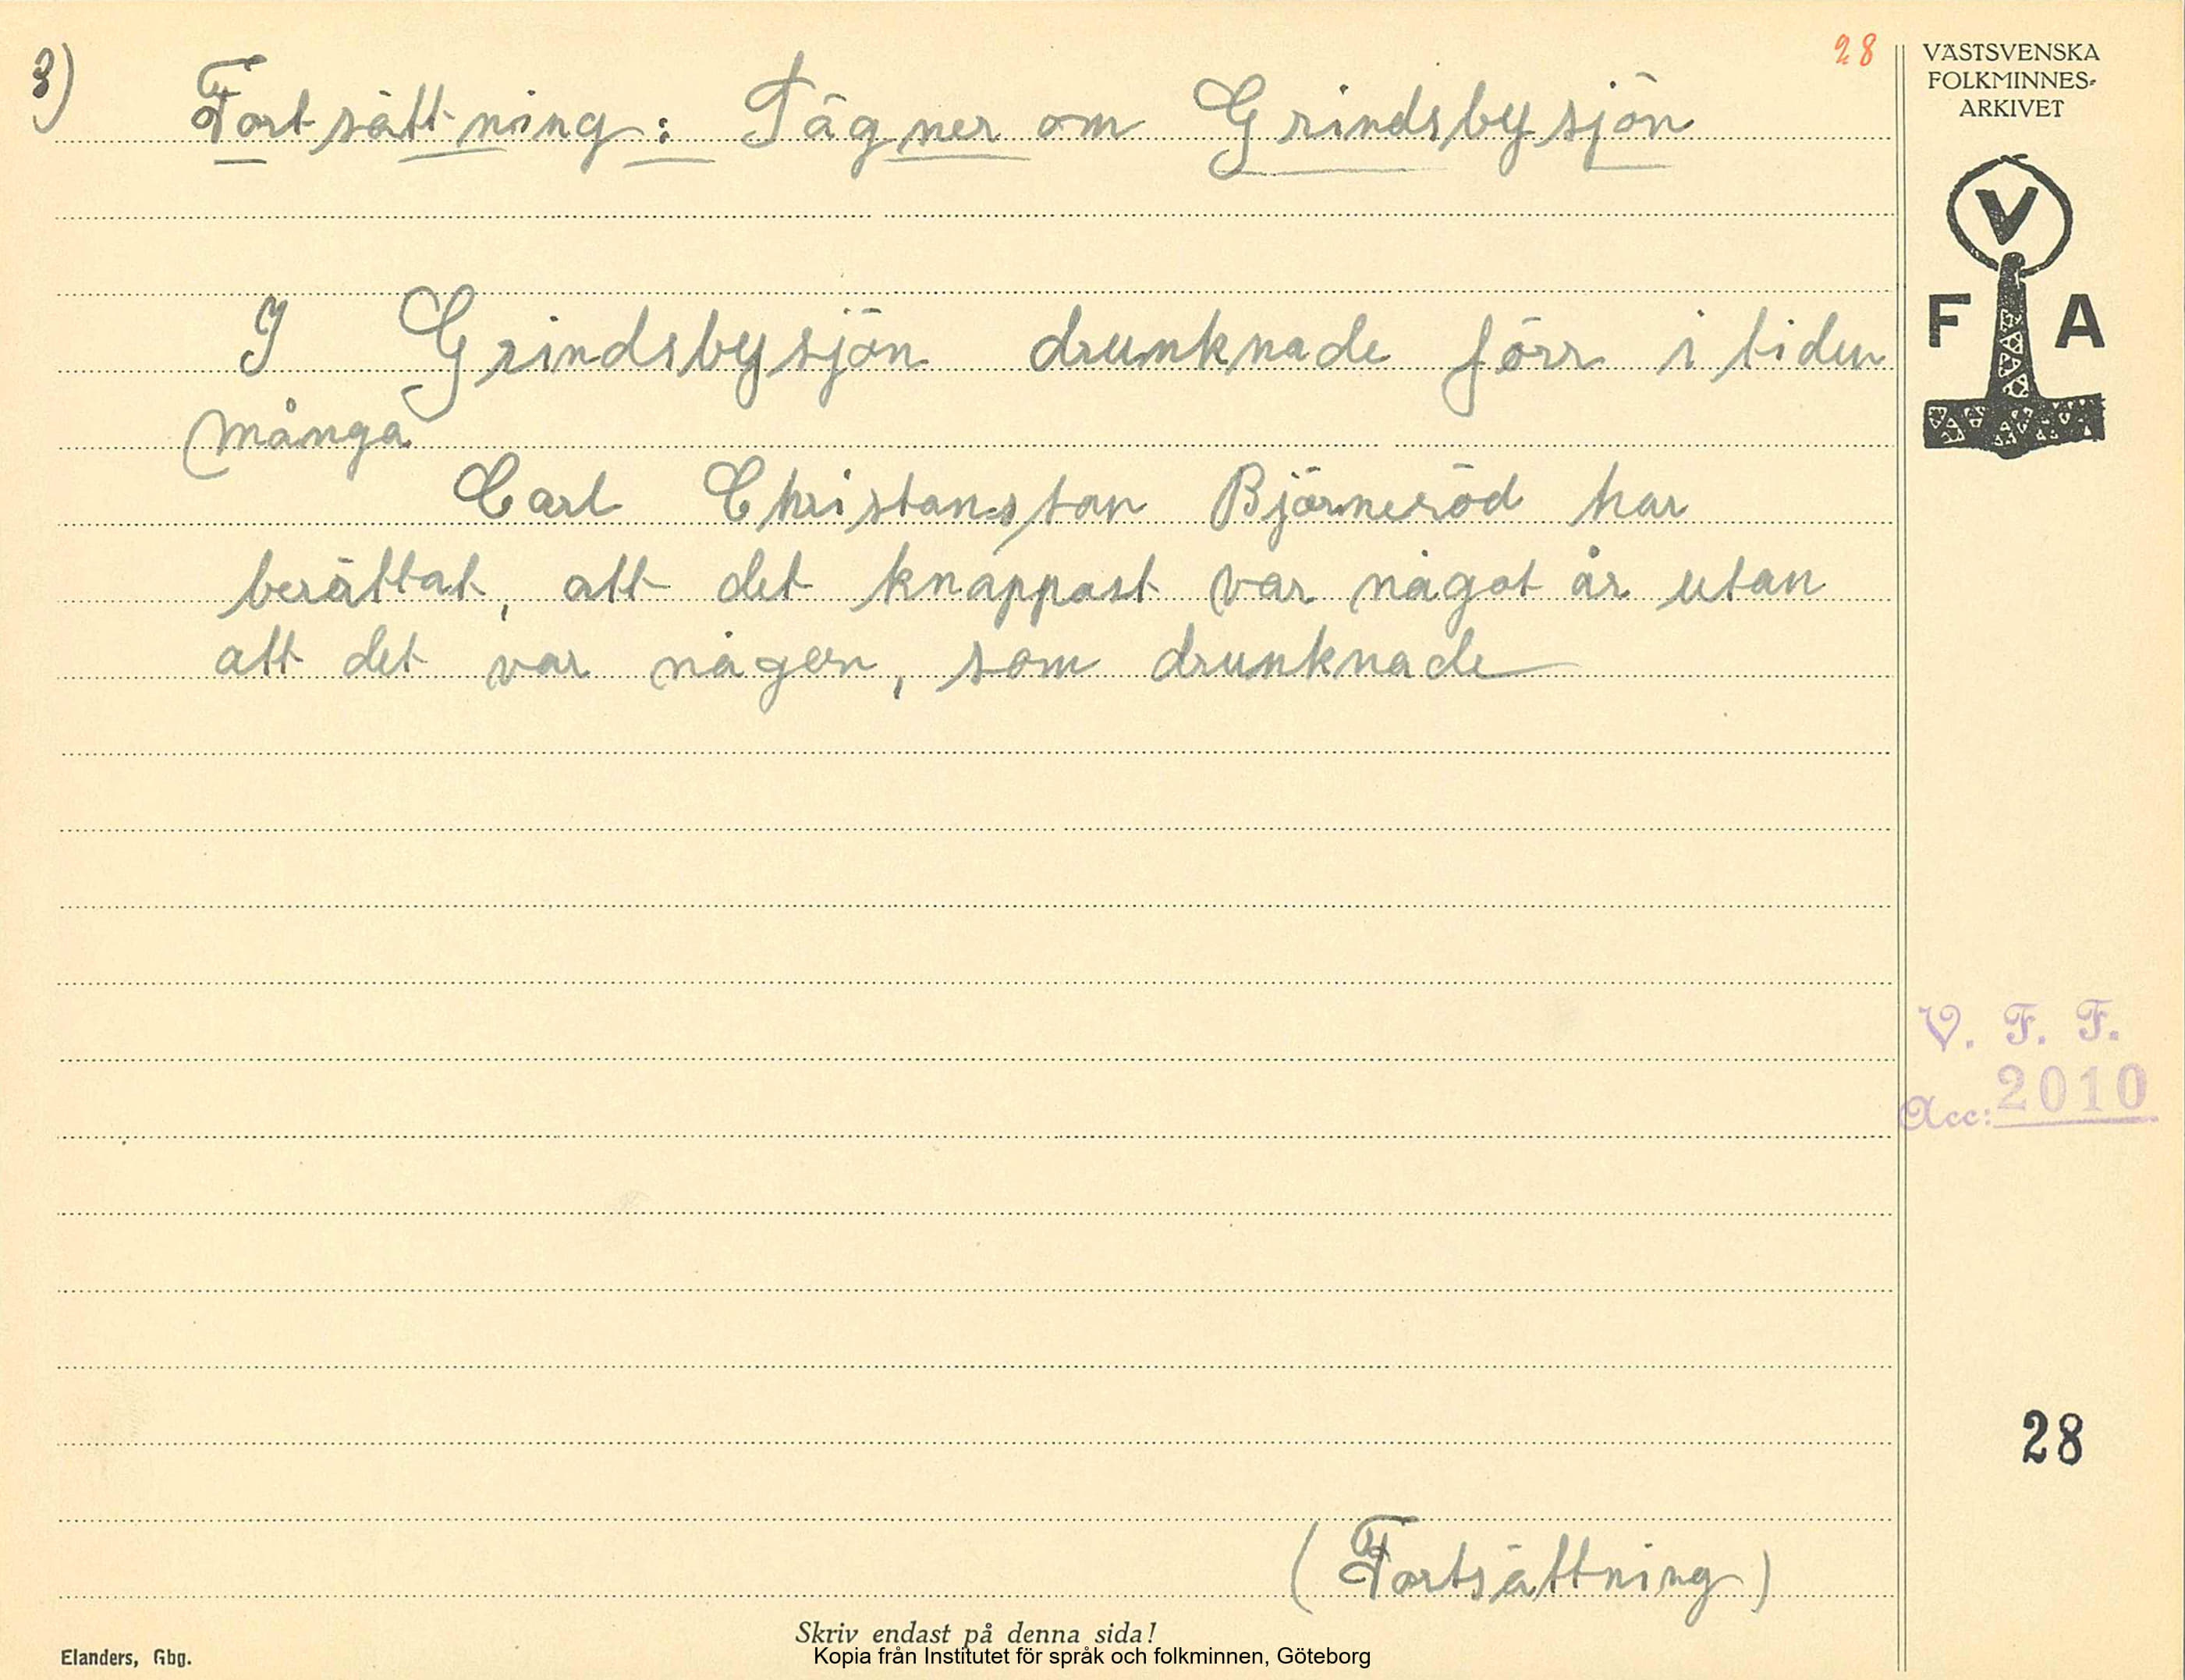 3)
28
Fortsättning: Sägner om Grindsbysjön
VÄSTSVENSKA
FOLKMINNES-
ARKIVET
V
F A
I Grindsbysjön drunknade förr i tiden
många
Carl Christansson Björneröd har
berättat, att det knappast var något år utan
att det var någon, som drunknade
V. F. F.
Acc: 2010
28
(Fortsättning)
Skriv endast på denna sida!
Kopia från Institutet för språk och folkminnen, Göteborg
Elanders, Gbg.